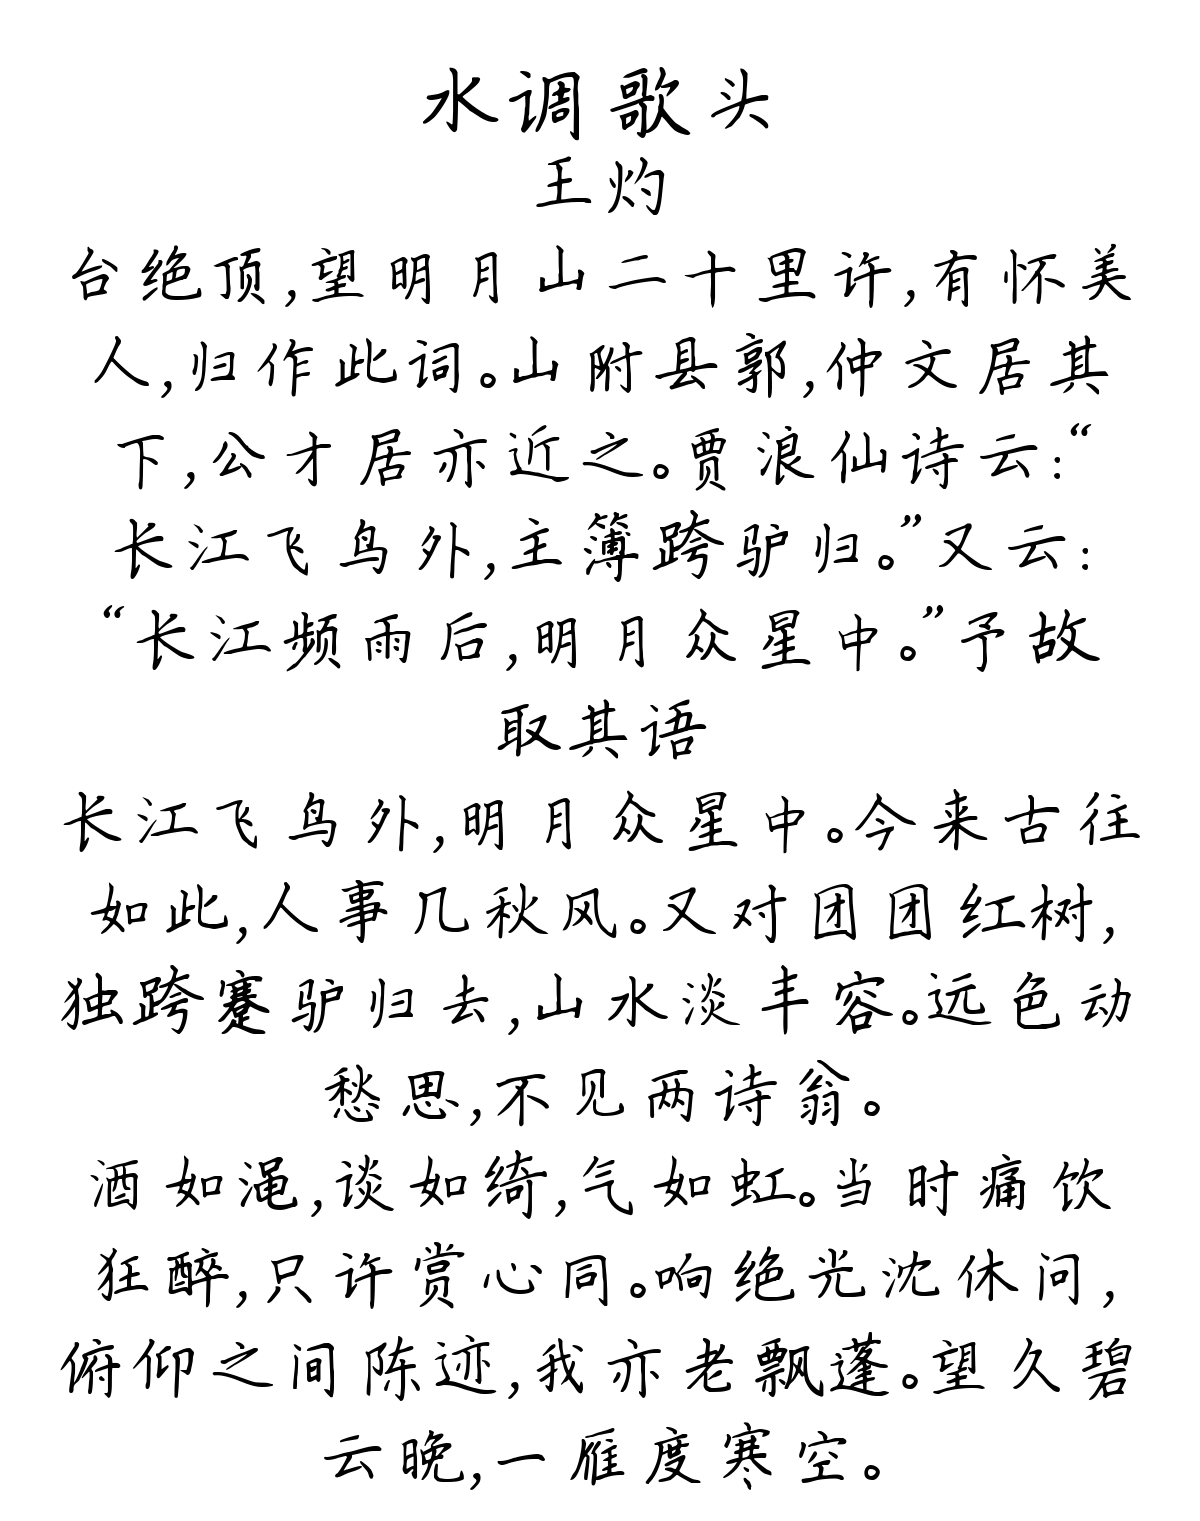 水调歌头
王灼
台绝顶,望明月山二十里许,有怀美
人,归作此词。山附县郭,仲文居其
下,公才居亦近之。贾浪仙诗云:“
长江飞鸟外,主簿跨驴归。”又云:
“长江频雨后,明月众星中。”予故
取其语
长江飞鸟外,明月众星中。今来古往
如此,人事几秋风。又对团团红树,
独跨蹇驴归去,山水淡丰容。远色动
愁思,不见两诗翁。
酒如渑,谈如绮,气如虹。当时痛饮
狂醉,只许赏心同。响绝光沈休问,
俯仰之间陈迹,我亦老飘蓬。望久碧
云晚,一雁度寒空。